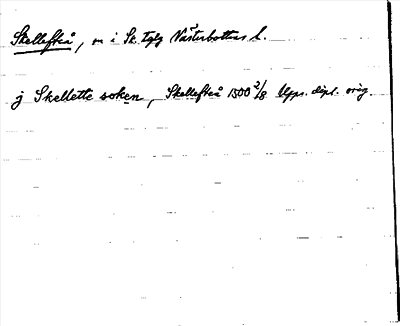 Skellefteå, sn i Sk. tglg Västerbottens l.
j Skellette soken, Skellefteå 1500 2/8 Upps. dipl. orig.